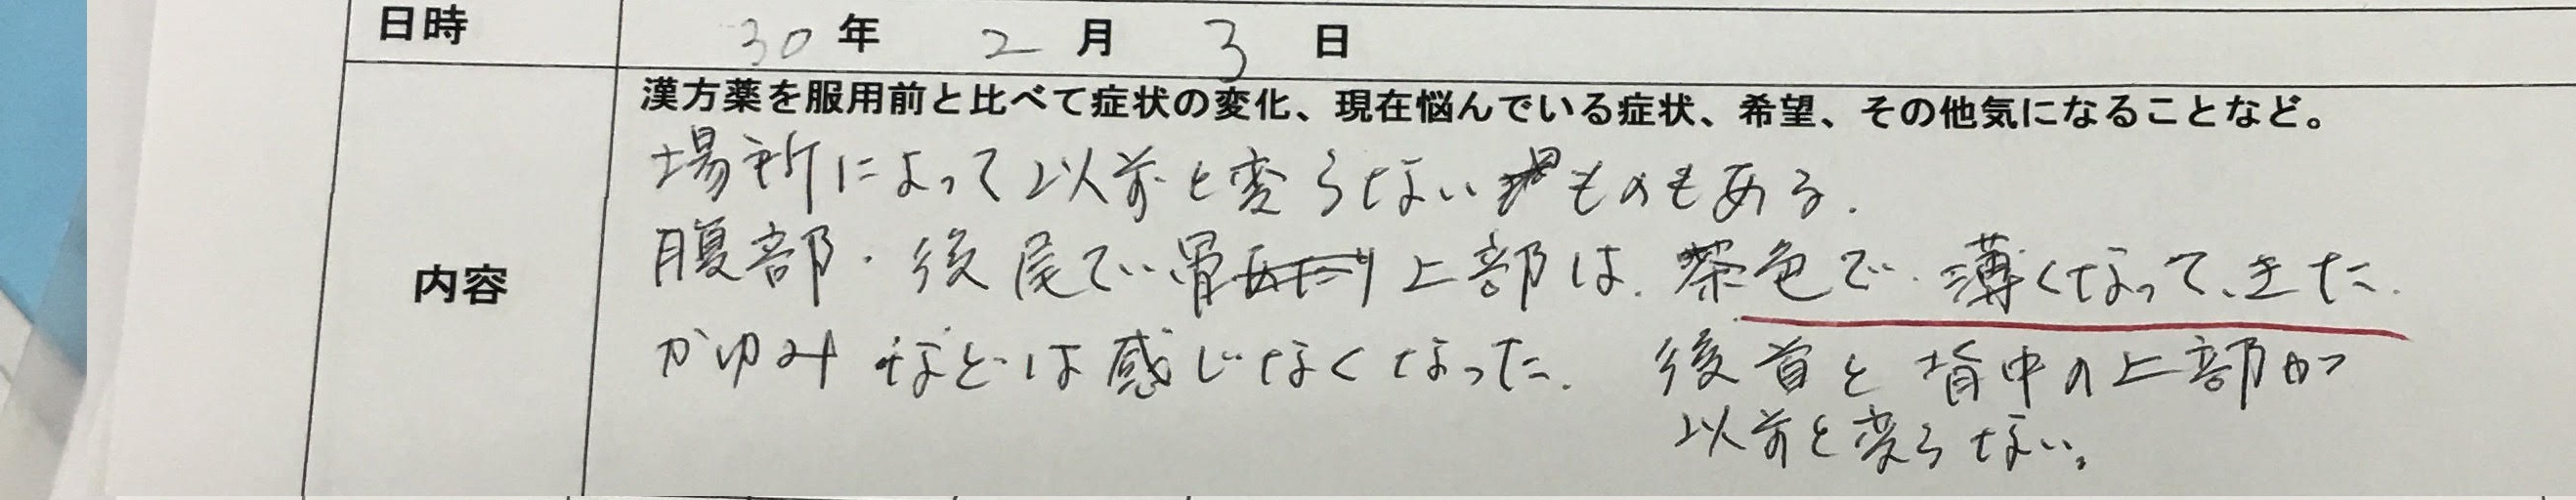 日時 30年 2月 3日
内容
漢方薬を服用前と比べて症状の変化、現在悩んでいる症状、希望、その他気になることなど。
場所によって以前と変らないものもある.
腹部・後尾てい骨上部は.茶色で薄くなってきた.
かゆみなどは感じなくなった. 後首と背中の上部が
以前と変らない。